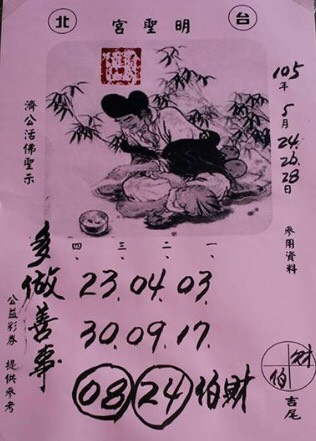 台北
明聖宮
105年5月24.26.28日
參用資料
濟公活佛聖示
一、二、三、四、
多做善事
23.04.03.
30.09.17.
08 24 伯財
財
伯
吉尾
公益彩券 提供參考